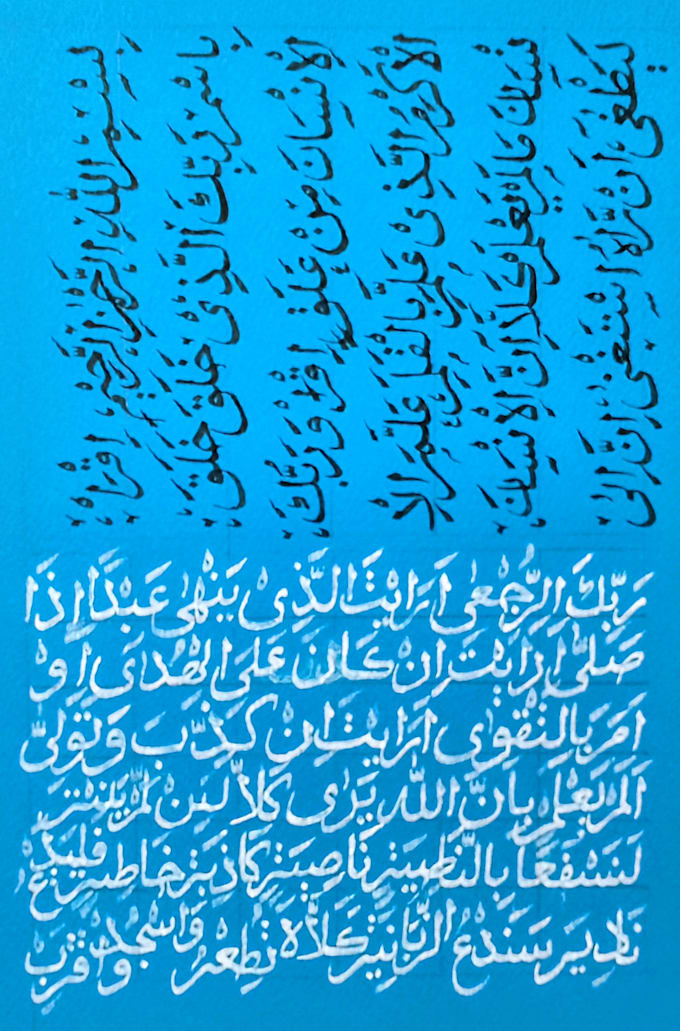 بِسْمِ اللّٰهِ الرَّحْمٰنِ الرَّحِيْمِ اِقْرَاْ
بِاسْمِ رَبِّكَ الَّذِىْ خَلَقَ خَلَقَ
الْاِنْسَانَ مِنْ عَلَقٍ اِقْرَاْ وَرَبُّكَ
الْاَكْرَمُ الَّذِىْ عَلَّمَ بِالْقَلَمِ عَلَّمَ الْاِ
نْسَانَ مَالَمْ يَعْلَمْ كَلَّا اِنَّ الْاِنْسَانَ
لَيَطْغٰى اَنْ رَّاٰهُ اسْتَغْنٰى اِنَّ اِلٰى
رَبِّكَ الرُّجْعٰى اَرَاَيْتَ الَّذِىْ يَنْهٰى عَبْدًا اِذَا
صَلّٰى اَرَاَيْتَ اِنْ كَانَ عَلَى الْهُدٰى اَوْ
اَمَرَ بِالتَّقْوٰى اَرَاَيْتَ اِنْ كَذَّبَ وَتَوَلّٰى
اَلَمْ يَعْلَمْ بِاَنَّ اللّٰهَ يَرٰى كَلَّا لَىِٕنْ لَّمْ يَنْتَهِ
لَنَسْفَعًا بِالنَّاصِيَةِ نَاصِيَةٍ كَاذِبَةٍ خَاطِئَةٍ فَلْيَدْعُ
نَادِيَهٗ سَنَدْعُ الزَّبَانِيَةَ كَلَّا لَا تُطِعْهُ وَاسْجُدْ وَاقْتَرِبْ